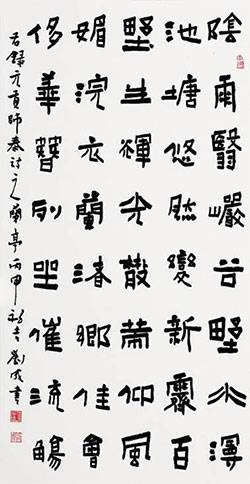 陰雨翳巖谷野水
池塘悠然變新霽百
生輝光散帶仰風
媚浣衣蘭渚鄉佳會
侈華簪列坐催流觴
右錄元貢師泰詩之蘭亭丙申初吉劉成書